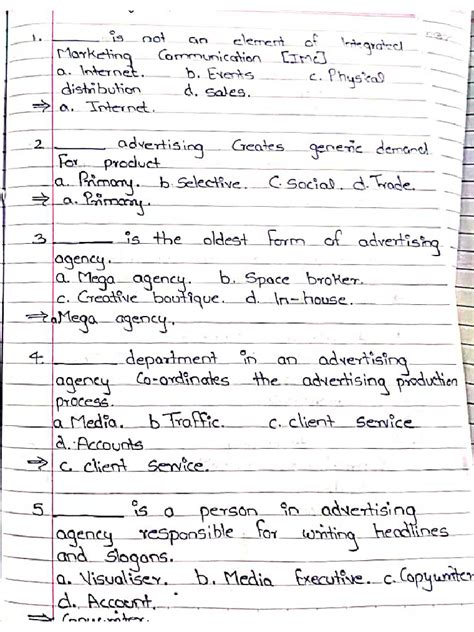 1. ______ is not an element of Integrated
Marketing Communication [IMC]
a. Internet. b. Events c. Physical
distribution d. sales.
⇒ a. Internet.
2 ______ advertising Creates generic demand
For product
a. Primary. b. Selective. C. Social. d. Trade.
⇒ a. Primary.
3 ______ is the oldest form of advertising
agency.
a. Mega agency. b. Space broker.
c. Creative boutique. d. In-house.
⇒ a Mega agency.
4. ______ department in an advertising
agency Co-ordinates the advertising production
process.
a Media. b Traffic. c. client service
d. Accounts
⇒ c. client service.
5. ______ is a person in advertising
agency responsible for writing headlines
and slogans.
a. Visualiser. b. Media Executive. c. Copywriter
d. Account.
⇒ Copywriter